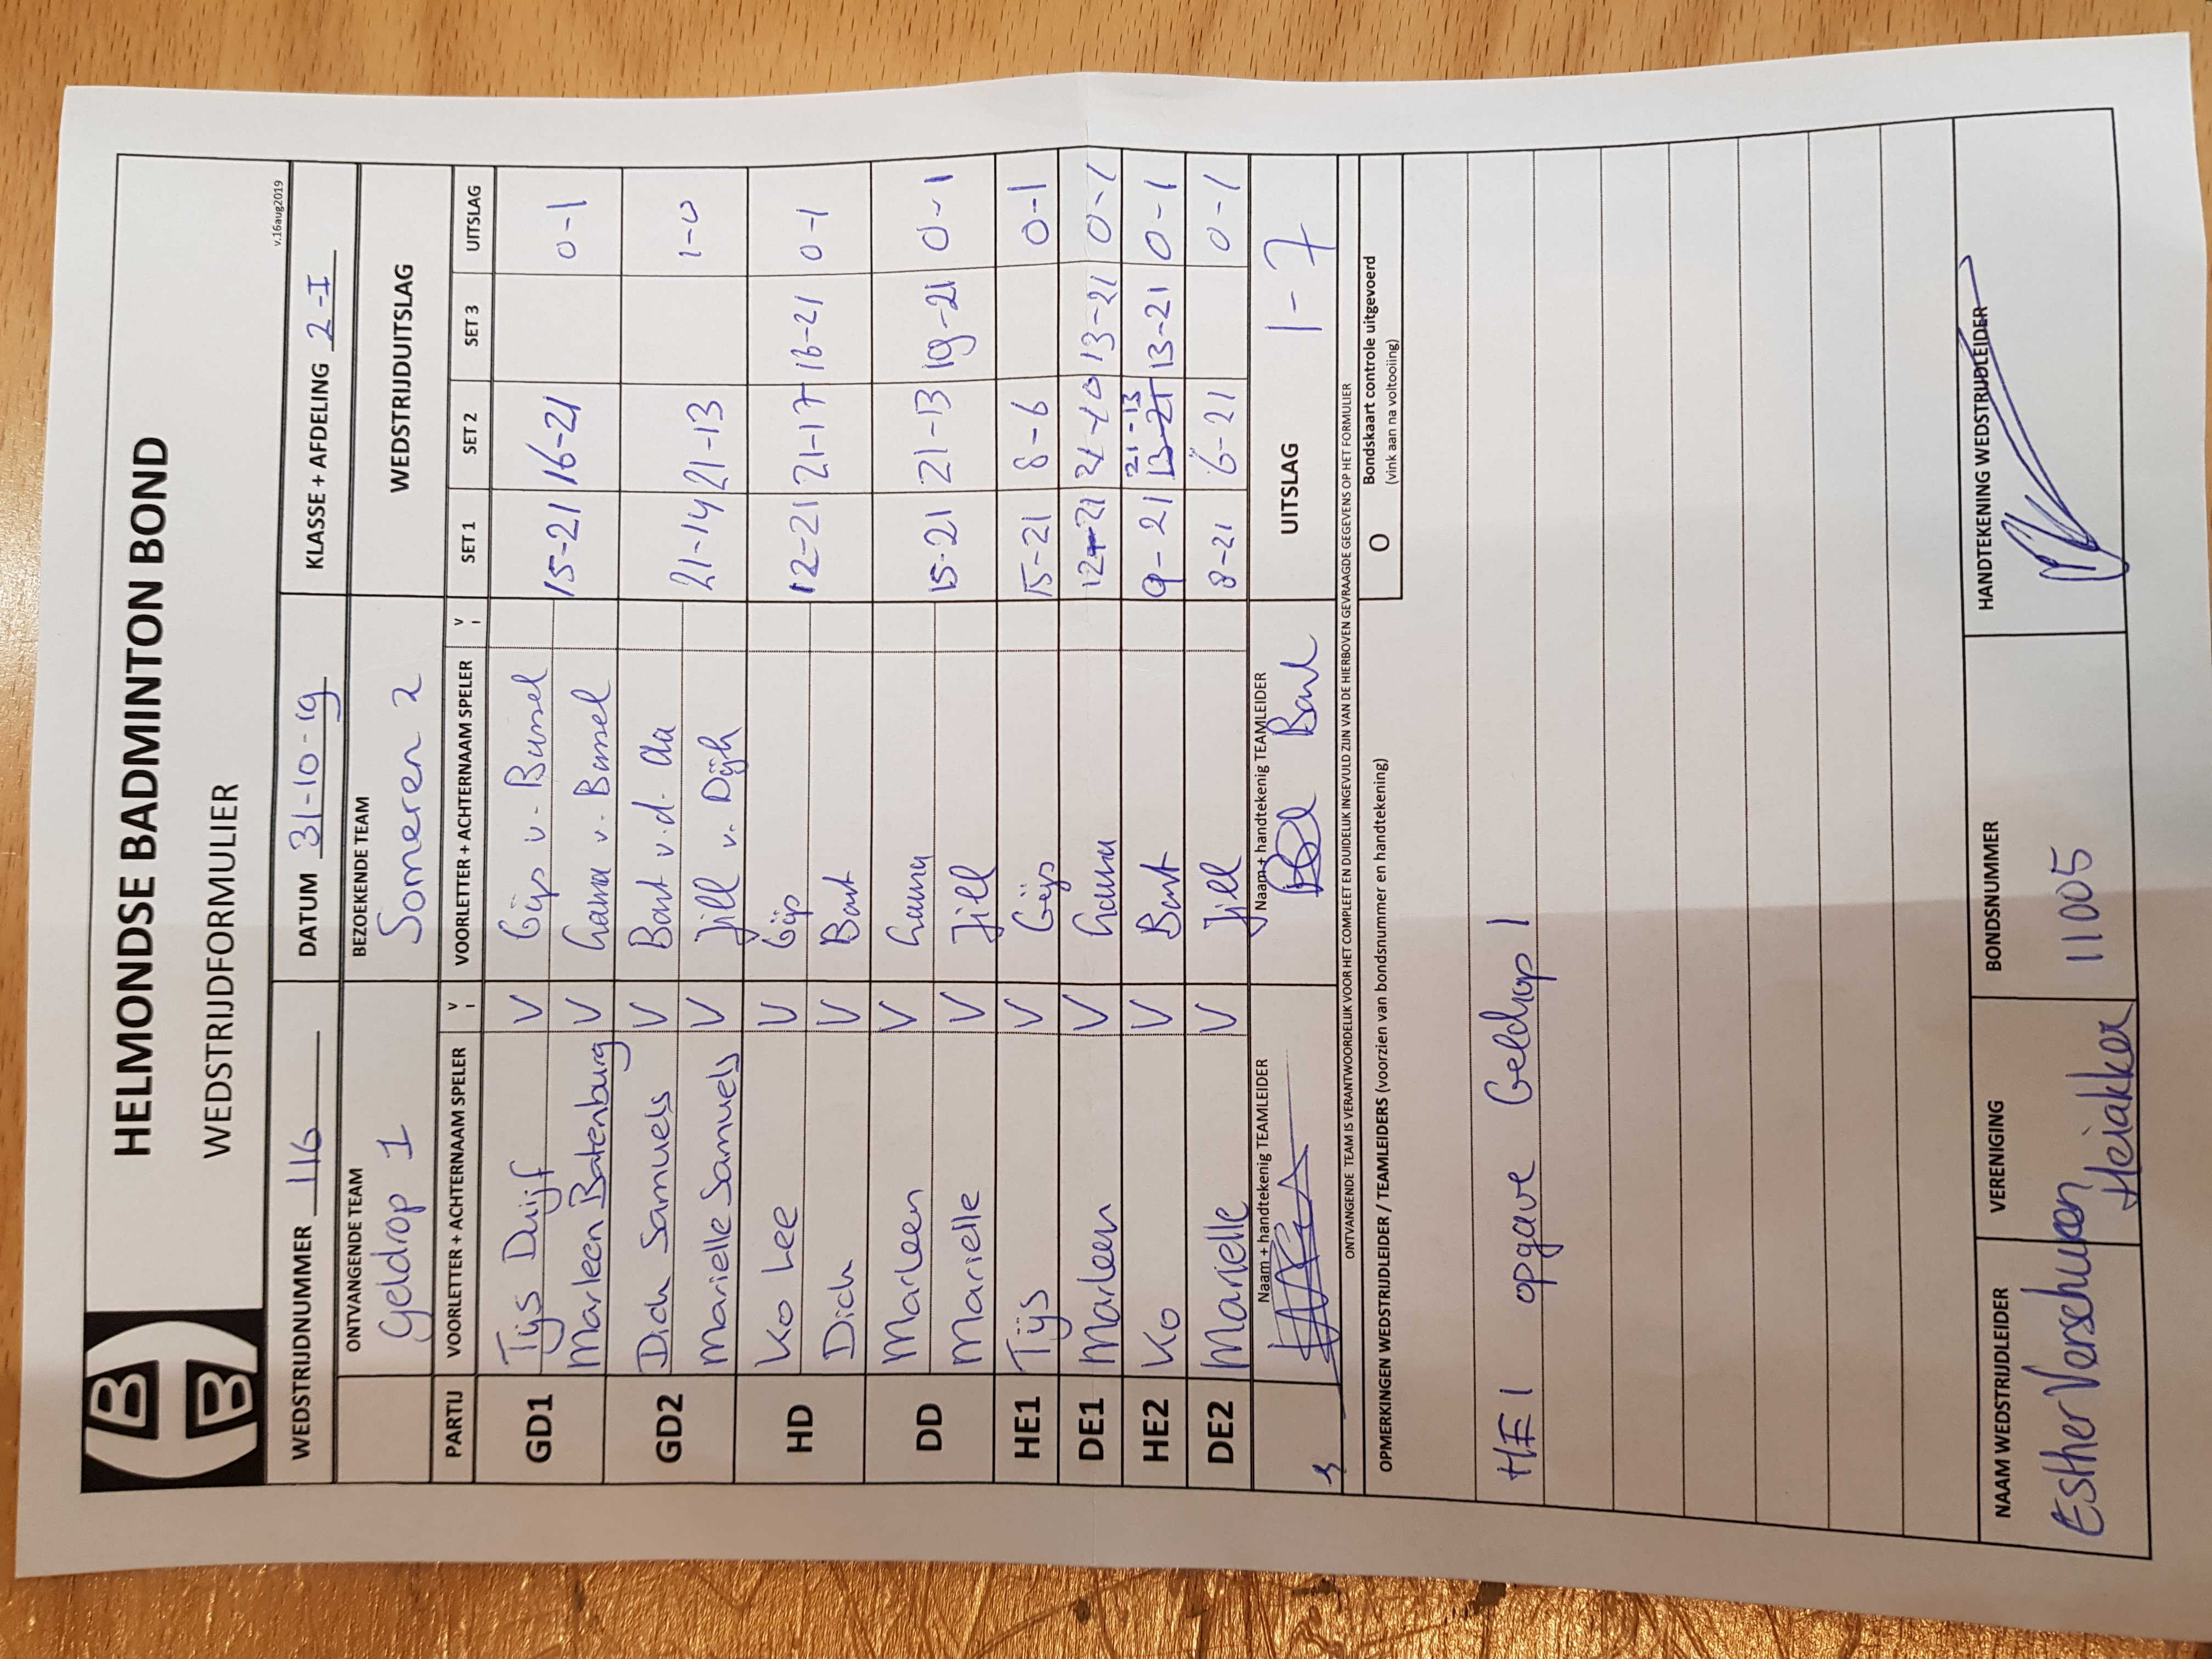 HELMONDSE BADMINTON BOND
WEDSTRIJDFORMULIER
v.16aug2019
WEDSTRIJDNUMMER 116 DATUM 31-10-19 KLASSE + AFDELING 2-I
ONTVANGENDE TEAM BEZOEKENDE TEAM WEDSTRIJDUITSLAG
Geldrop 1 Someren 2
PARTIJ VOORLETTER + ACHTERNAAM SPELER V I VOORLETTER + ACHTERNAAM SPELER V I SET 1 SET 2 SET 3 UITSLAG
GD1 Tijs Duijf V Gijs v. Bussel 15-21 16-21 0-1
Marleen Batenburg V v. Bussel
GD2 Dick Samuels V Bart v.d. Aa 21-14 21-13 1-0
Marielle Samuels V Jill v. Dijk
HD Ko Lee V Gijs 12-21 21-17 16-21 0-1
Dick V Bart
DD Marleen V 15-21 21-13 19-21 0-1
Marielle V Jill
HE1 Tijs V Gijs 15-21 8-6 0-1
DE1 Marleen V 12-21 21-10 13-21 0-1
HE2 Ko V Bart 9-21 21-13 13-21 0-1
DE2 Marielle V Jill 8-21 6-21 0-1
Naam + handtekenig TEAMLEIDER Naam + handtekenig TEAMLEIDER UITSLAG 1-7
Bart
ONTVANGENDE TEAM IS VERANTWOORDELIJK VOOR HET COMPLEET EN DUIDELIJK INGEVULD ZIJN VAN DE HIERBOVEN GEVRAAGDE GEGEVENS OP HET FORMULIER
OPMERKINGEN WEDSTRIJDLEIDER / TEAMLEIDERS (voorzien van bondsnummer en handtekening) O Bondskaart controle uitgevoerd
(vink aan na voltooiing)
HE1 opgave Geldrop 1
NAAM WEDSTRIJDLEIDER VERENIGING BONDSNUMMER HANDTEKENING WEDSTRIJDLEIDER
Esther Verschuren Heiakker 11005